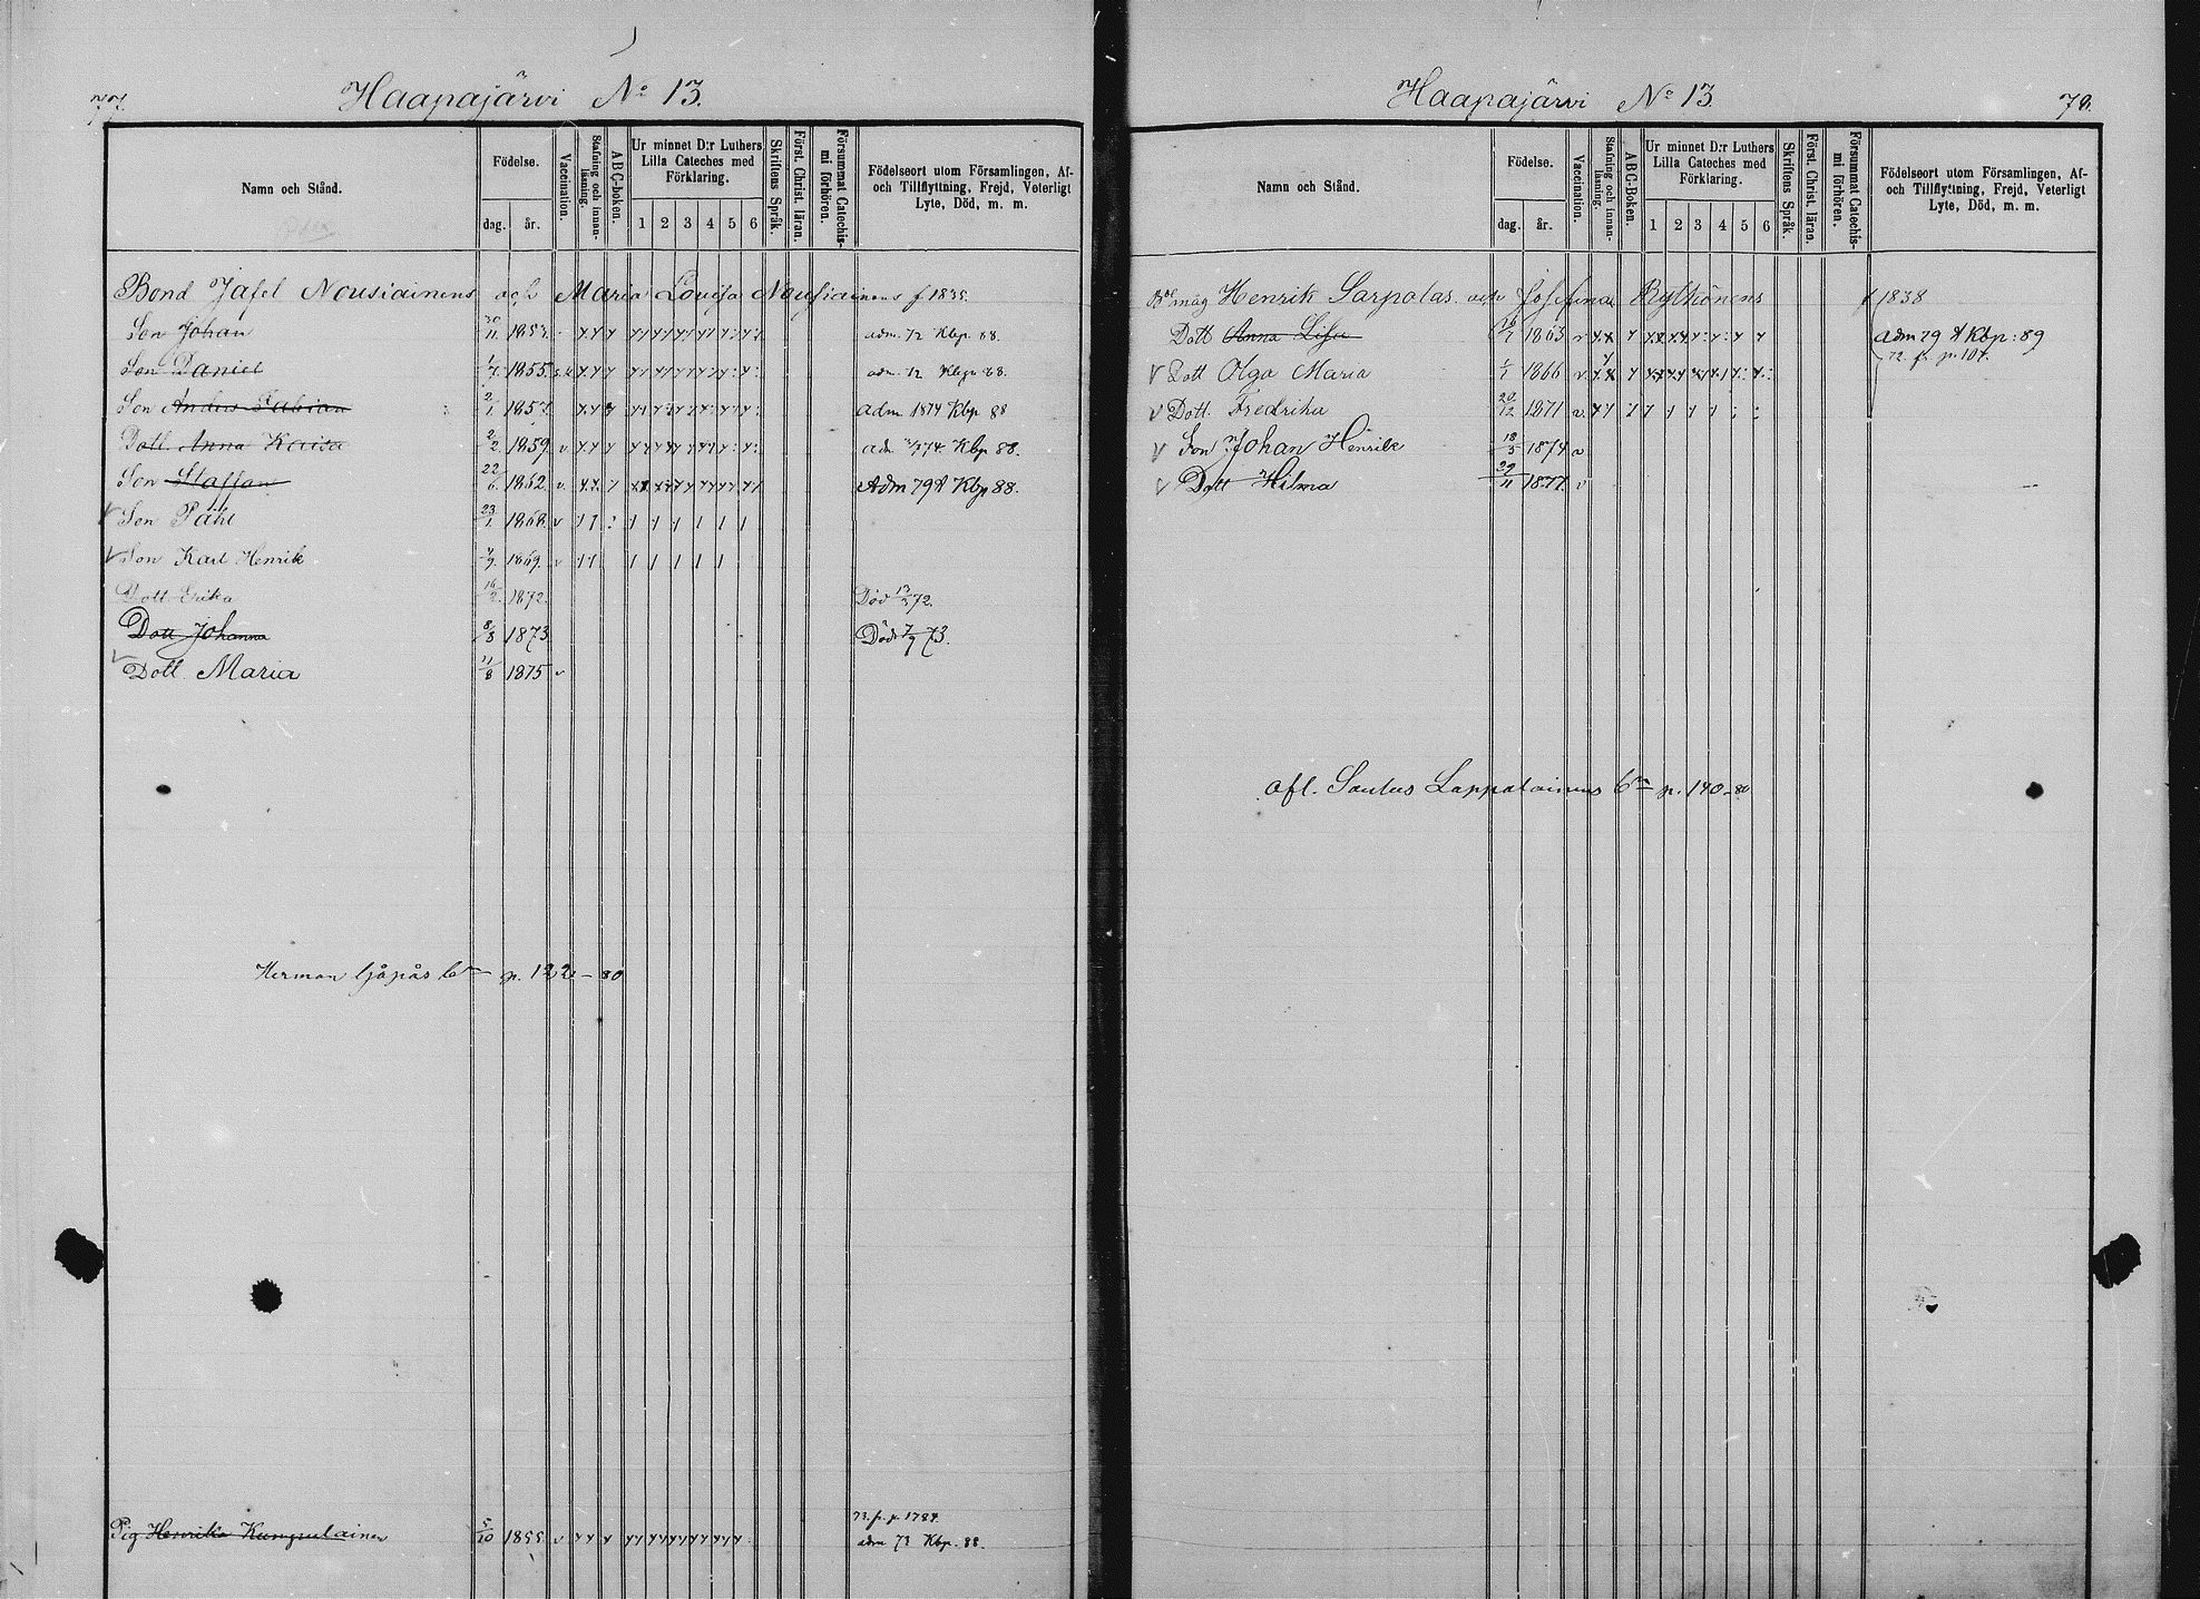 77.
Haapajärvi No 13.
Namn och Stånd.
Födelse.
dag.
år.
Vaccination.
Stafning och innan-läsning.
ABC-boken.
Ur minnet D:r Luthers Lilla Cateches med Förklaring.
1 2 3 4 5 6
Skriftens Språk.
Först. Christ. läran.
Försummat Catechis-mi förhören.
Födelseort utom Församlingen, Af- och Tillflyttning, Frejd, Veterligt Lyte, Död, m. m.
Bond Jafel Nousiainens och Maria Lovisa Nousiainens f 1835.
Son Johan 30/11 1853. adm. 72 Kbp. 88.
Son Daniel 1/7 1855. adm. 72 Kbp. 88.
Son Anders Fabian 2/1 1857. adm. 1874 Kbp 88
Dott. Anna Kaisa 2/2 1859 v Kbp 88.
Son Staffan 22/6 1862 v. Adm 79 Kbp 88.
Son Påhl 23/1 1868. v
Son Karl Henrik 1869. v
Dott Erika 16/2 1872. Död 13/3 72.
Dott Johanna 8/8 1873 Död 7/9 73.
Dott. Maria 11/8 1875 v
Herman p. 122 – 80
Pig Henrika 5/10 1855 v
73. f. p. 1784.
adm 73 Kbp. 88.
Haapajärvi No 13.
78.
Namn och Stånd.
Födelse.
dag.
år.
Vaccination.
Stafning och innan-läsning.
ABC-Boken.
Ur minnet D:r Luthers Lilla Cateches med Förklaring.
1 2 3 4 5 6
Skriftens Språk.
Först. Christ. läran.
Försummat Catechis-mi förhören.
Födelseort utom Församlingen, Af- och Tillflyttning, Frejd, Veterligt Lyte, Död, m. m.
måg Henrik Sarpolas och Josefina Rytkönens f 1838
Dott Anna Lisa 1863 v adm 79 Kbp: 89
72. fr. p. 107.
v Dott Olga Maria 1/1 1866 v
v Dott. Fredrika 20/12 1871 v
v Son Johan Henrik 18/5 1874 v
v Dott Hilma 29/11 1877. v
Afl. Lappalainens p. 140 – 80